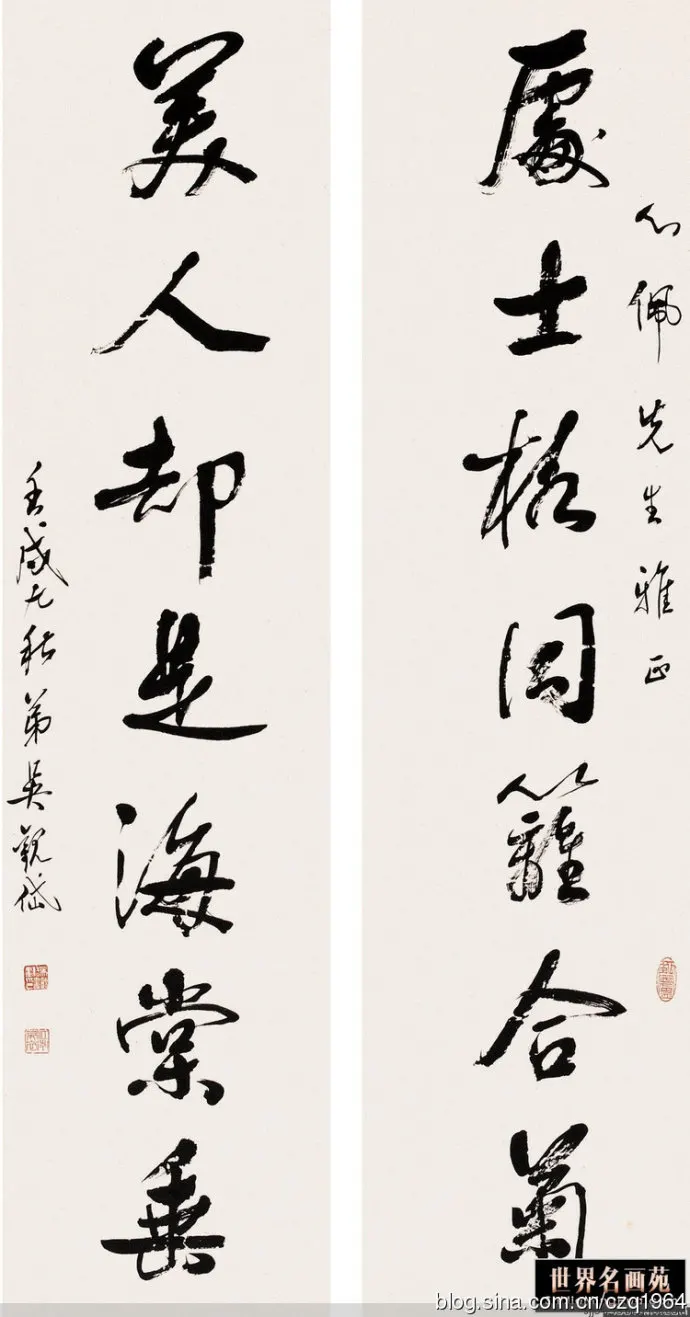 心佩先生雅正
處士格同籬合菊
美人却是海棠垂
壬戌九秋弟吳觀岱
世界名画苑
blog.sina.com.cn/czq1964